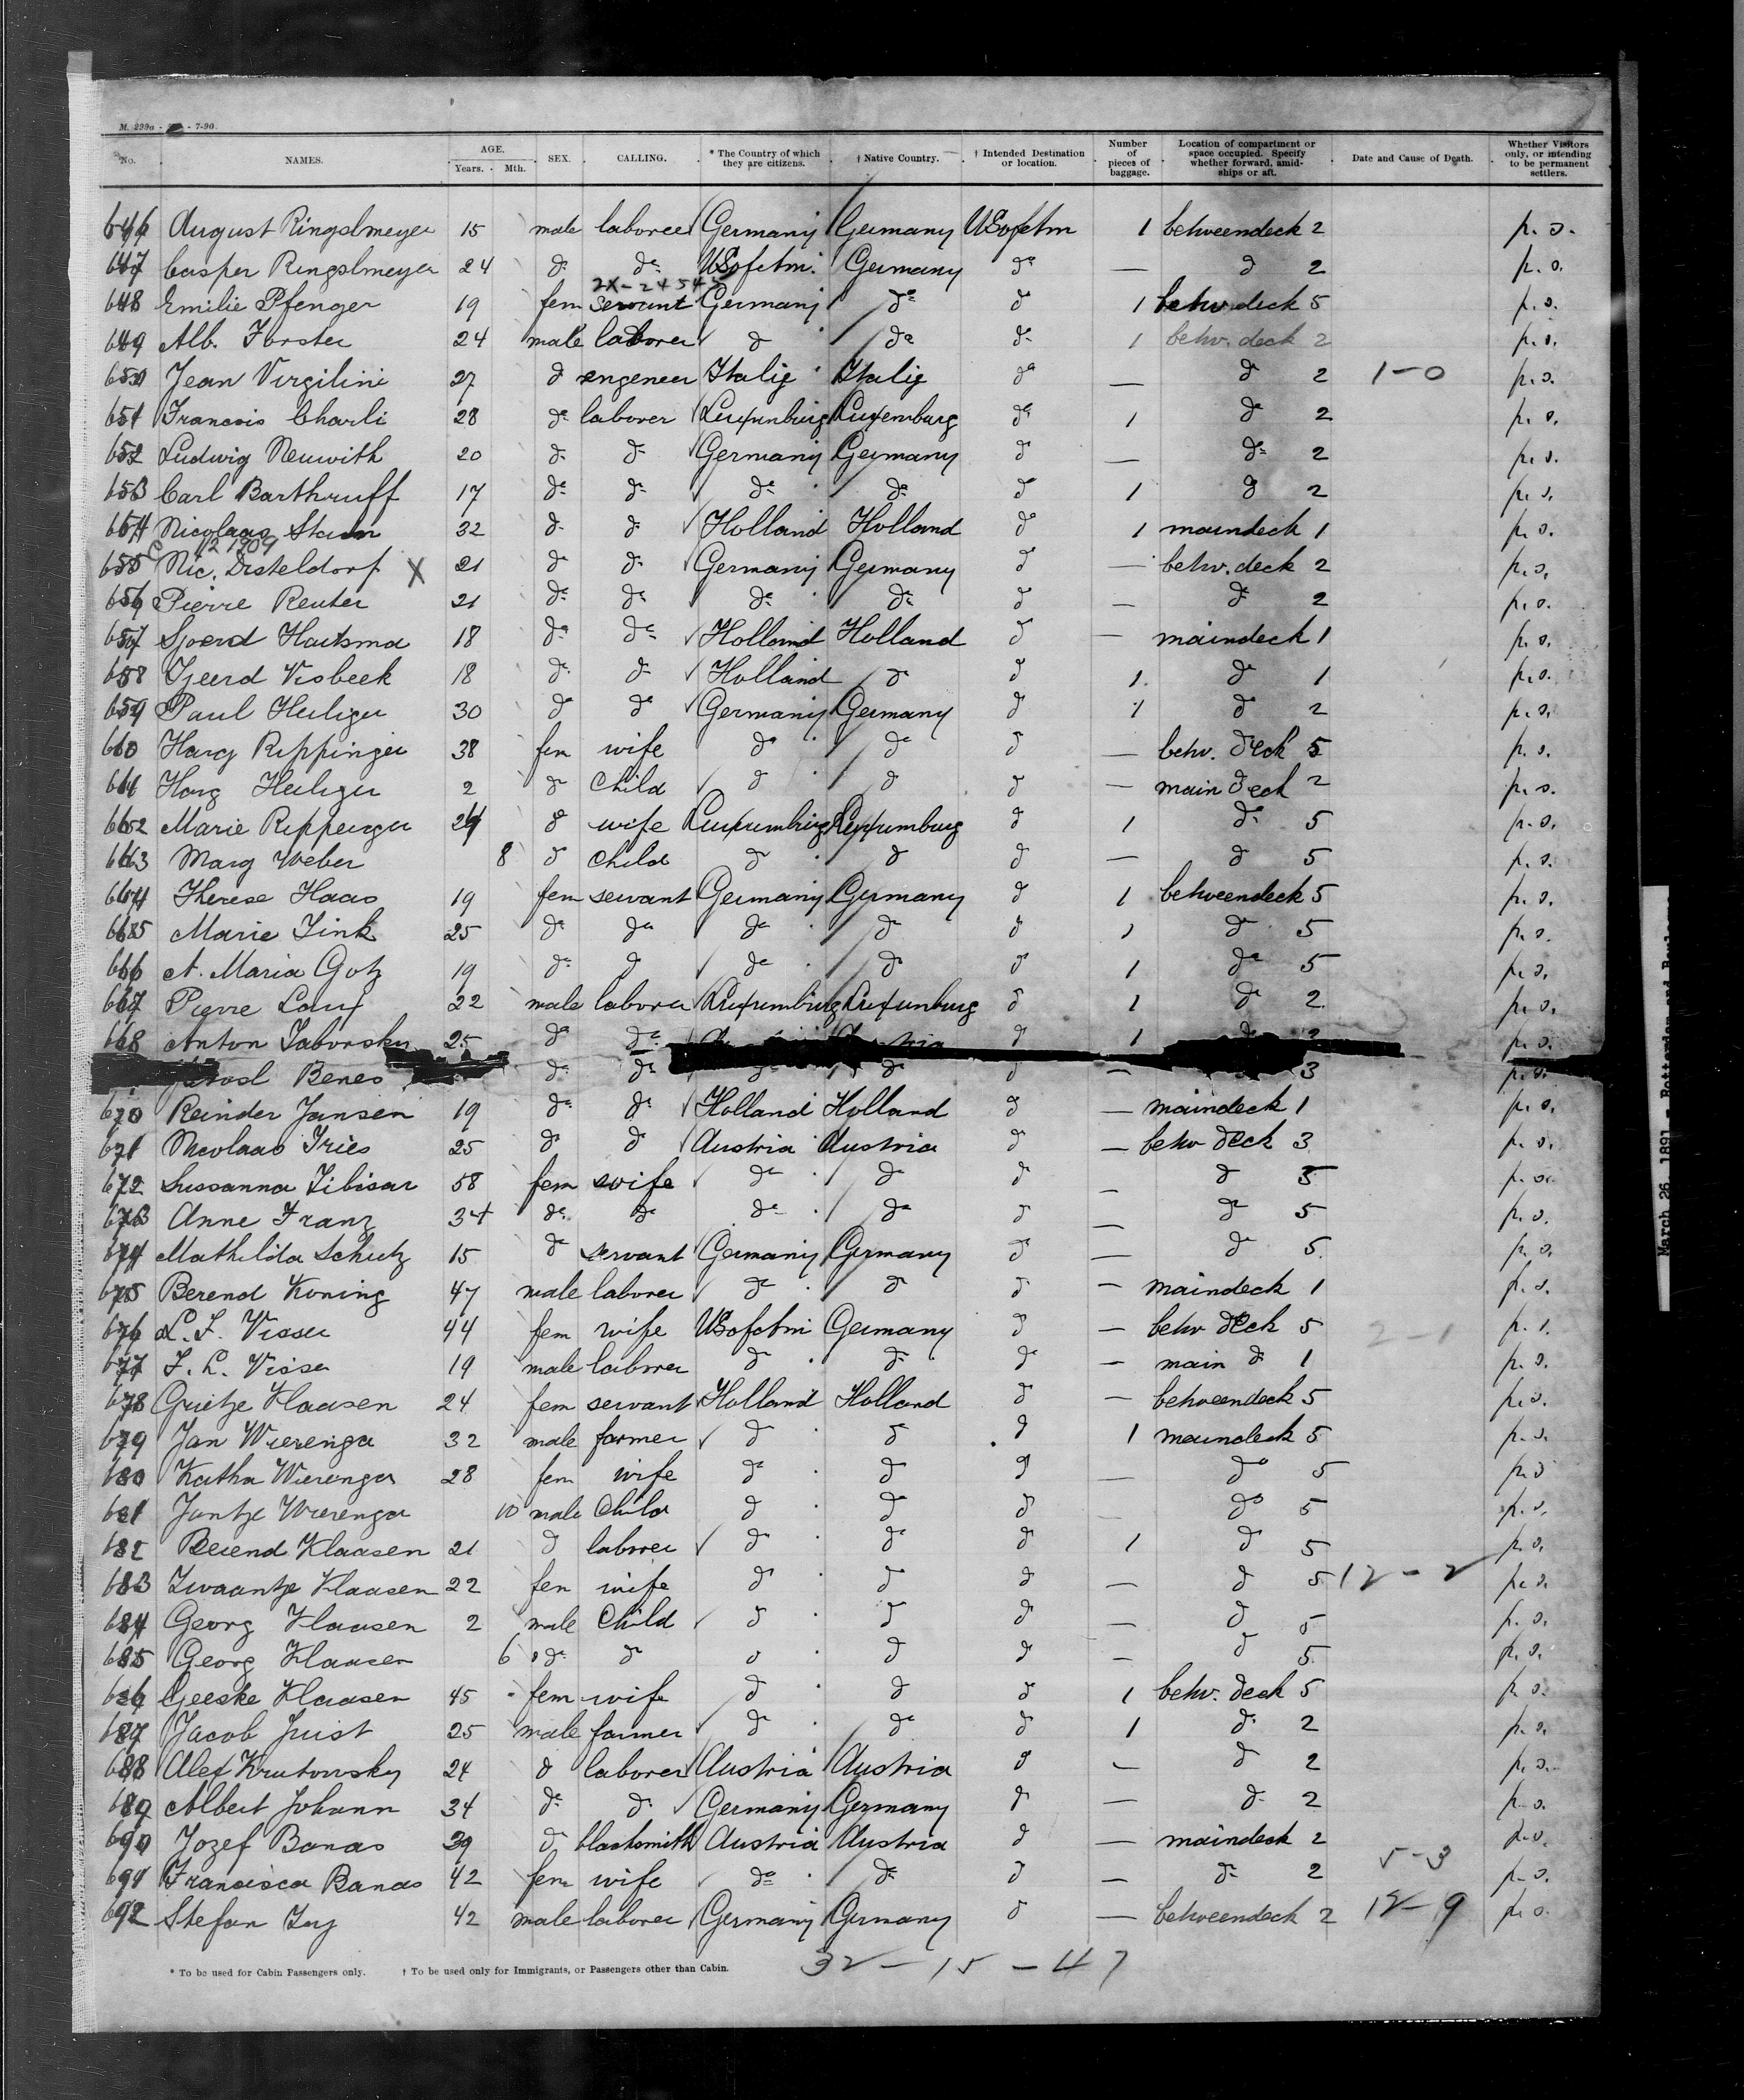 M. 239a - - 7-90.
No. NAMES. AGE. Years. Mth. SEX. CALLING. * The Country of which they are citizens. † Native Country. † Intended Destination or location. Number of pieces of baggage. Location of compartment or space occupied. Specify whether forward, amidships or aft. Date and Cause of Death. Whether Visitors only, or intending to be permanent settlers.
646 August Ringslmeyer 15 male laborer Germany Germany USofAm 1 betweendeck 2 p. s.
647 Casper Ringslmeyer 24 do do USofAm. Germany do — do 2 p. s.
2X-24545
648 Emilie Pfenger 19 fem servant Germany do do 1 betw. deck 5 p. s.
649 Alb. Forster 24 male laborer do do do 1 betw. deck 2 p. s.
650 Jean Virgilini 27 do engeneer Italie Italie do — do 2 1-0 p. s.
651 Francois Charli 28 do laborer Luxemburg Luxemburg do 1 do 2 p. s.
652 Ludwig Neuwith 20 do do Germany Germany do — do 2 p. s.
653 Carl Barthruff 17 do do do do do 1 do 2 p. s.
654 Nicolaas Stam 32 do do Holland Holland do 1 maindeck 1 p. s.
655 Nic. Disteldorf X 21 do do Germany Germany do — betw. deck 2 p. s.
656 Pierre Reuter 21 do do do do do — do 2 p. s.
657 Sjoerd Haitsma 18 do do Holland Holland do — maindeck 1 p. s.
658 Tjeerd Visbeek 18 do do Holland do do 1 do 1 p. s.
659 Paul Heiliger 30 do do Germany Germany do 1 do 2 p. s.
660 Harg Rippinger 38 fem wife do do do — betw. deck 5 p. s.
661 Harg Heiliger 2 do child do do do — main deck 2 p. s.
662 Marie Ripperger 24 do wife Luxumburg Luxumburg do 1 do 5 p. s.
663 Marg Weber 8 do child do do do — do 5 p. s.
664 Therese Haas 19 fem servant Germany Germany do 1 betweendeck 5 p. s.
665 Marie Fink 25 do do do do do 1 do 5 p. s.
666 A. Maria Gotz 19 do do do do do 1 do 5 p. s.
667 Pierre 22 male laborer Luxumburg Luxunburg do 1 do 2 p. s.
668 Anton Taborsky 25 do do do 1 do 2 p. s.
Benes do do do do do — 3 p. s.
670 Reinder Jansen 19 do do Holland Holland do — maindeck 1 p. s.
671 Nicolaas Fries 25 do do Austria Austria do — betw deck 3 p. s.
672 Sussanna Tibisar 58 fem wife do do do — do 5 p. s.
673 Anne Franz 34 do do do do do — do 5 p. s.
674 Mathilda Schutz 15 do servant Germany Germany do — do 5 p. s.
675 Berend Koning 47 male laborer do do do — maindeck 1 p. s.
676 L. F. Visser 44 fem wife USofAm Germany do — betw deck 5 2-1 p. s.
677 F. L. Visser 19 male laborer do do do — main do 1 p. s.
678 Grietje Klaasen 24 fem servant Holland Holland do — betweendeck 5 p. s.
679 Jan Wierenga 32 male farmer do do do 1 maindeck 5 p. s.
680 Katha Wierenga 28 fem wife do do do — do 5 p. s.
681 Jantje Wierenga 10 male child do do do — do 5 p. s.
682 Berend Klaasen 21 do laborer do do do 1 do 5 p. s.
683 Zwaantje Klaasen 22 fem wife do do do — do 5 12-2 p. s.
684 Georg Klaasen 2 male child do do do — do 5 p. s.
685 Georg Klaasen 6 do do do do do — do 5 p. s.
686 Geeske Klaasen 45 fem wife do do do 1 betw. deck 5 p. s.
687 Jacob Juist 25 male farmer do do do 1 do 2 p. s.
688 Alex Krutowsky 24 do laborer Austria Austria do — do 2 p. s.
689 Albert Johann 34 do do Germany Germany do — do 2 p. s.
690 Jozef Banas 39 do blacksmith Austria Austria do — maindeck 2 p. s.
691 Francisca Banas 42 fem wife do do do — do 2 5-3 p. s.
692 Stefan 42 male laborer Germany Germany do — betweendeck 2 12-9 p. s.
* To be used for Cabin Passengers only. † To be used only for Immigrants, or Passengers other than Cabin.
32 - 15 - 47
March 26, 1891 - Rotterdam and